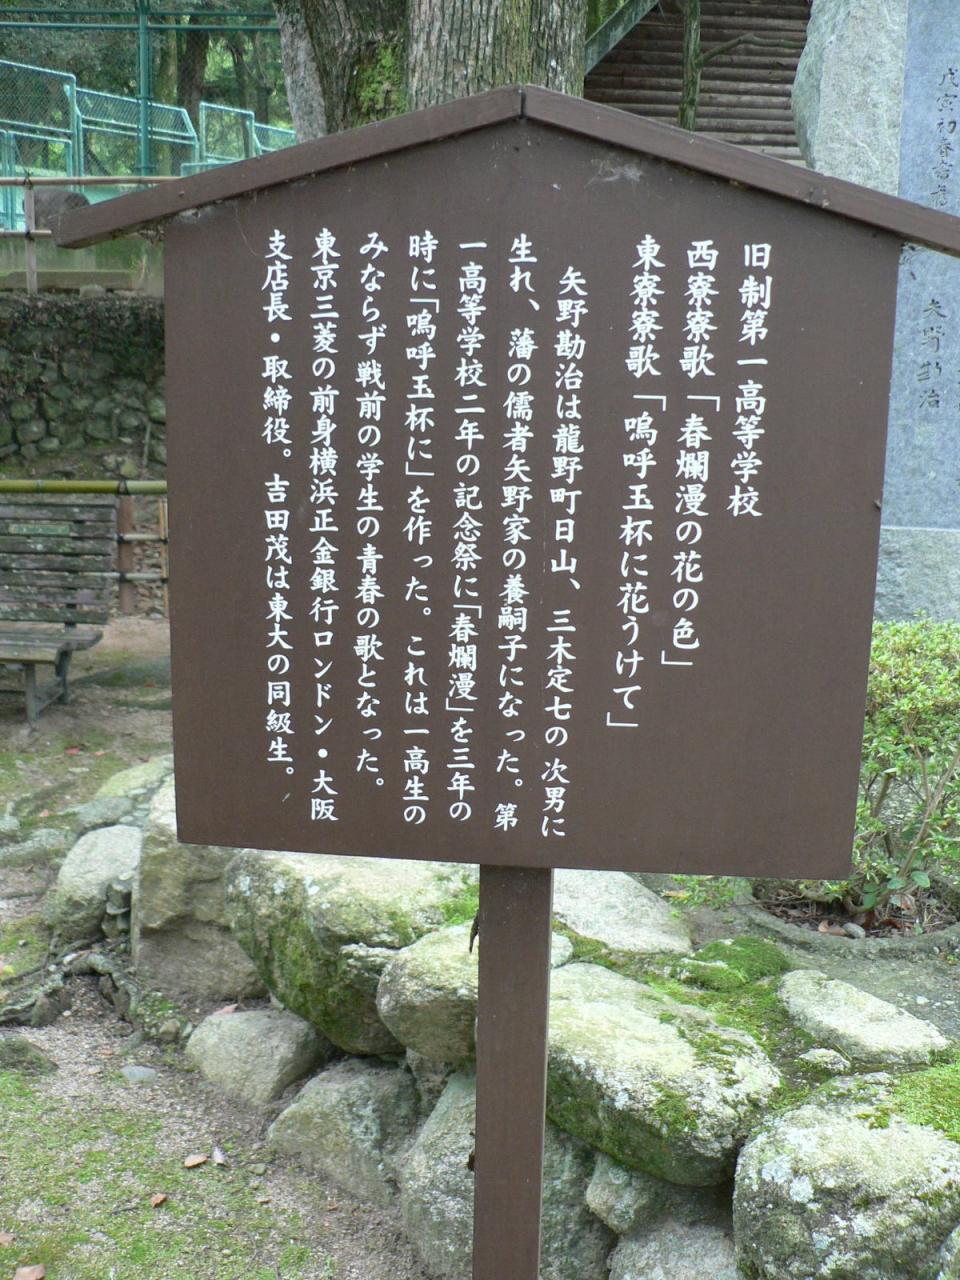 旧制第一高等学校
西寮寮歌「春爛漫の花の色」
東寮寮歌「嗚呼玉杯に花うけて」
矢野勘治は龍野町日山、三木定七の次男に
生れ、藩の儒者矢野家の養嗣子になった。第
一高等学校二年の記念祭に「春爛漫」を三年の
時に「嗚呼玉杯に」を作った。これは一高生の
みならず戦前の学生の青春の歌となった。
東京三菱の前身横浜正金銀行ロンドン・大阪
支店長・取締役。吉田茂は東大の同級生。
矢野勘治